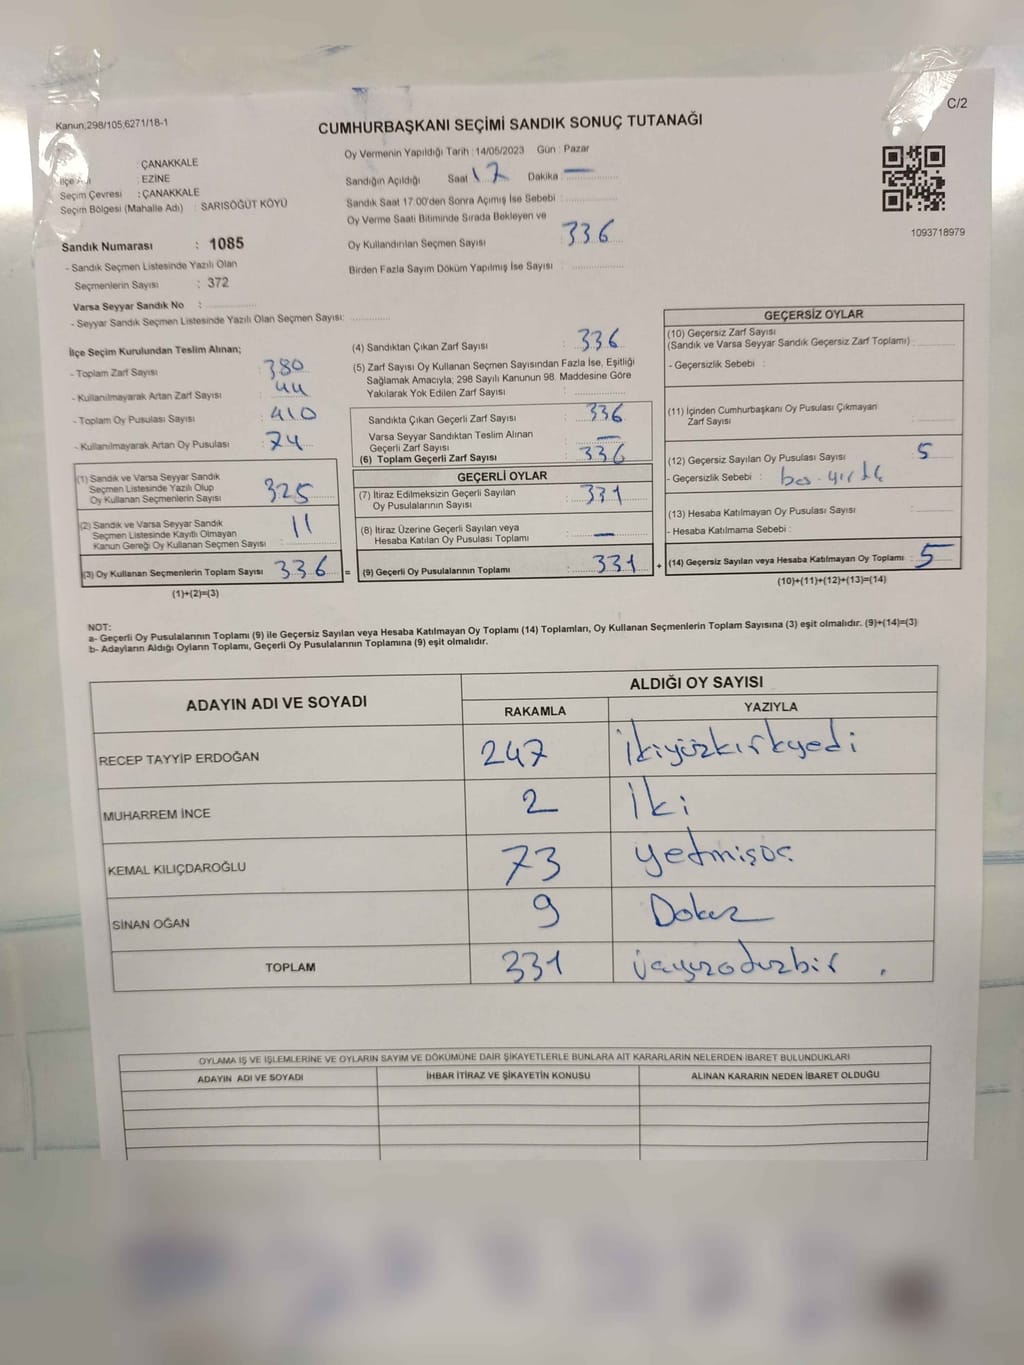 Kanun;298/105;6271/18-1
C/2
CUMHURBAŞKANI SEÇİMİ SANDIK SONUÇ TUTANAĞI
: ÇANAKKALE
: EZİNE
Seçim Çevresi : ÇANAKKALE
Seçim Bölgesi (Mahalle Adı) : SARISÖĞÜT KÖYÜ
Sandık Numarası : 1085
- Sandık Seçmen Listesinde Yazılı Olan
Seçmenlerin Sayısı : 372
Varsa Seyyar Sandık No :
- Seyyar Sandık Seçmen Listesinde Yazılı Olan Seçmen Sayısı:
Oy Vermenin Yapıldığı Tarih : 14/05/2023 Gün : Pazar
Sandığın Açıldığı Saat 17 Dakika : —
Sandık Saat 17.00'den Sonra Açımış İse Sebebi :
Oy Verme Saati Bitiminde Sırada Bekleyen ve
Oy Kullandırılan Seçmen Sayısı : 336
Birden Fazla Sayım Döküm Yapılmış İse Sayısı :
1093718979
İlçe Seçim Kurulundan Teslim Alınan;
- Toplam Zarf Sayısı : 380
- Kullanılmayarak Artan Zarf Sayısı : 44
- Toplam Oy Pusulası Sayısı : 410
- Kullanılmayarak Artan Oy Pusulası : 74
(1) Sandık ve Varsa Seyyar Sandık
Seçmen Listesinde Yazılı Olup
Oy Kullanan Seçmenlerin Sayısı : 325
(2) Sandık ve Varsa Seyyar Sandık
Seçmen Listesinde Kayıtlı Olmayan
Kanun Gereği Oy Kullanan Seçmen Sayısı : 11
(3) Oy Kullanan Seçmenlerin Toplam Sayısı : 336
(1)+(2)=(3)
(4) Sandıktan Çıkan Zarf Sayısı : 336
(5) Zarf Sayısı Oy Kullanan Seçmen Sayısından Fazla İse, Eşitliği
Sağlamak Amacıyla; 298 Sayılı Kanunun 98. Maddesine Göre
Yakılarak Yok Edilen Zarf Sayısı :
Sandıkta Çıkan Geçerli Zarf Sayısı : 336
Varsa Seyyar Sandıktan Teslim Alınan
Geçerli Zarf Sayısı : —
(6) Toplam Geçerli Zarf Sayısı : 336
GEÇERLİ OYLAR
(7) İtiraz Edilmeksizin Geçerli Sayılan
Oy Pusulalarının Sayısı : 331
(8) İtiraz Üzerine Geçerli Sayılan veya
Hesaba Katılan Oy Pusulası Toplamı : —
= (9) Geçerli Oy Pusulalarının Toplamı : 331
GEÇERSİZ OYLAR
(10) Geçersiz Zarf Sayısı
(Sandık ve Varsa Seyyar Sandık Geçersiz Zarf Toplamı) :
- Geçersizlik Sebebi :
(11) İçinden Cumhurbaşkanı Oy Pusulası Çıkmayan
Zarf Sayısı :
(12) Geçersiz Sayılan Oy Pusulası Sayısı : 5
- Geçersizlik Sebebi :
(13) Hesaba Katılmayan Oy Pusulası Sayısı :
- Hesaba Katılmama Sebebi :
+ (14) Geçersiz Sayılan veya Hesaba Katılmayan Oy Toplamı : 5
(10)+(11)+(12)+(13)=(14)
NOT:
a- Geçerli Oy Pusulalarının Toplamı (9) ile Geçersiz Sayılan veya Hesaba Katılmayan Oy Toplamı (14) Toplamları, Oy Kullanan Seçmenlerin Toplam Sayısına (3) eşit olmalıdır. (9)+(14)=(3)
b- Adayların Aldığı Oyların Toplamı, Geçerli Oy Pusulalarının Toplamına (9) eşit olmalıdır.
ADAYIN ADI VE SOYADI ALDIĞI OY SAYISI
RAKAMLA YAZIYLA
RECEP TAYYİP ERDOĞAN 247 ikiyüzkırkyedi
MUHARREM İNCE 2 iki
KEMAL KILIÇDAROĞLU 73 yetmişüç
SİNAN OĞAN 9 Dokuz
TOPLAM 331
OYLAMA İŞ VE İŞLEMLERİNE VE OYLARIN SAYIM VE DÖKÜMÜNE DAİR ŞİKAYETLERLE BUNLARA AİT KARARLARIN NELERDEN İBARET BULUNDUKLARI
ADAYIN ADI VE SOYADI İHBAR İTİRAZ VE ŞİKAYETİN KONUSU ALINAN KARARIN NEDEN İBARET OLDUĞU